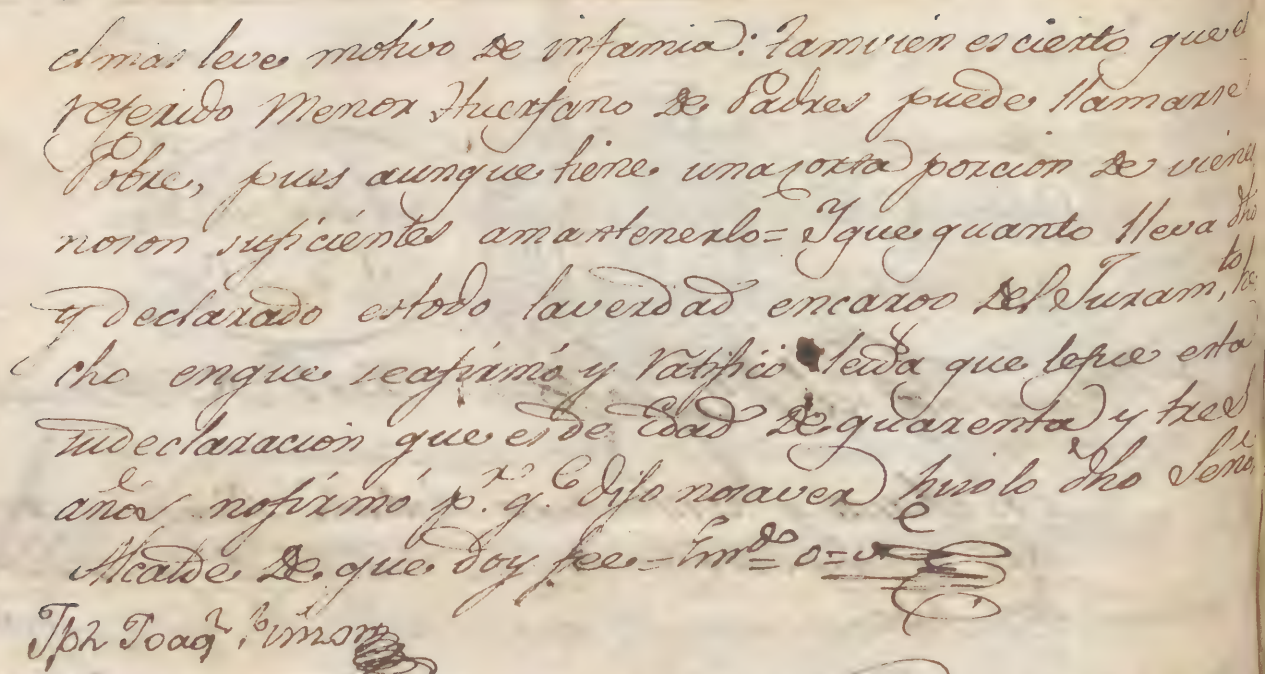 elmas leve motivo de infamia: tamvien es cierto que el
referido Menor Huerfano de Padres puede llamarse
Pobre, pues aunque tiene una corta porcion de vienes
noson suficientes amantenerlo = Y que quanto lleva dho
y declarado estodo laverdad encargo del Juram.to he
cho enque seafirmó y Ratificó leida que lefue esta
sudeclaracion que es de Edad de quarenta y tres
años nofirmó p.r q.e dijo nosaver hizolo dho Señor
Alcalde de que doy fee = Enm.do o =
Jph Joaq.n